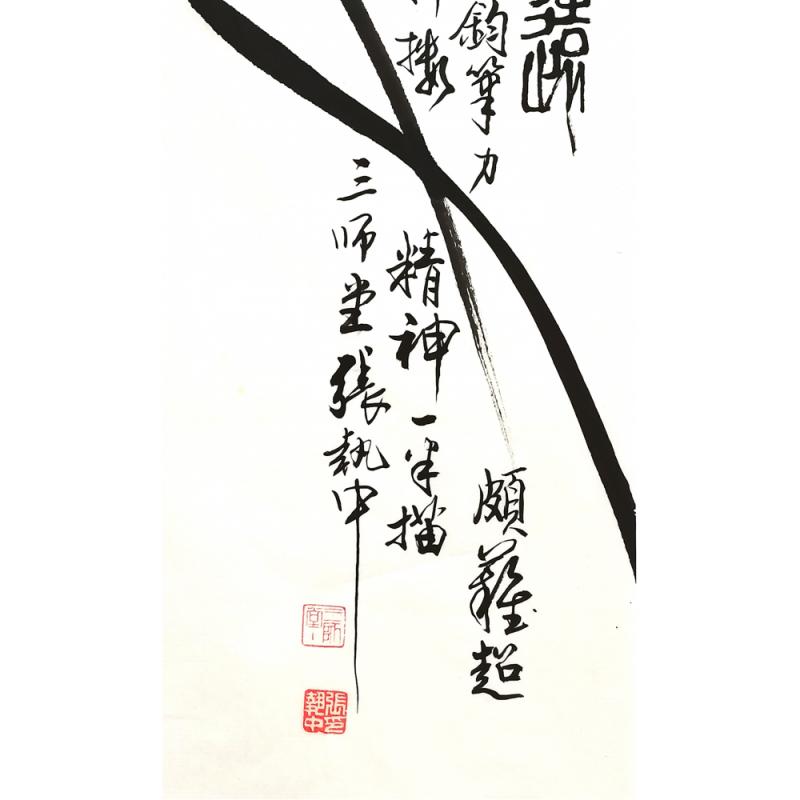 鈞筆力
頗難超
精神一半描
三师堂張執中
三師堂
張執中印